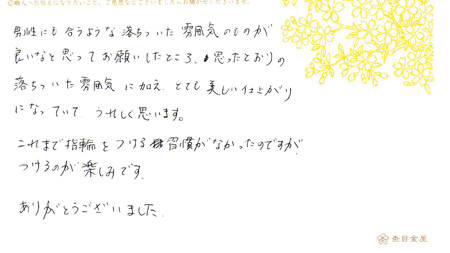 ◎職人への伝えになりたいこと、ご感想などございましたらお聞かせくださいませ。
男性にも合うような落ちついた雰囲気のものが
良いなと思ってお願いしたところ、思ったとおりの
落ちついた雰囲気に加え、とても美しい仕上がり
になっていて、うれしく思います。
これまで指輪をつける習慣がなかったのですが、
つけるのが楽しみです。
ありがとうございました。
杢目金屋